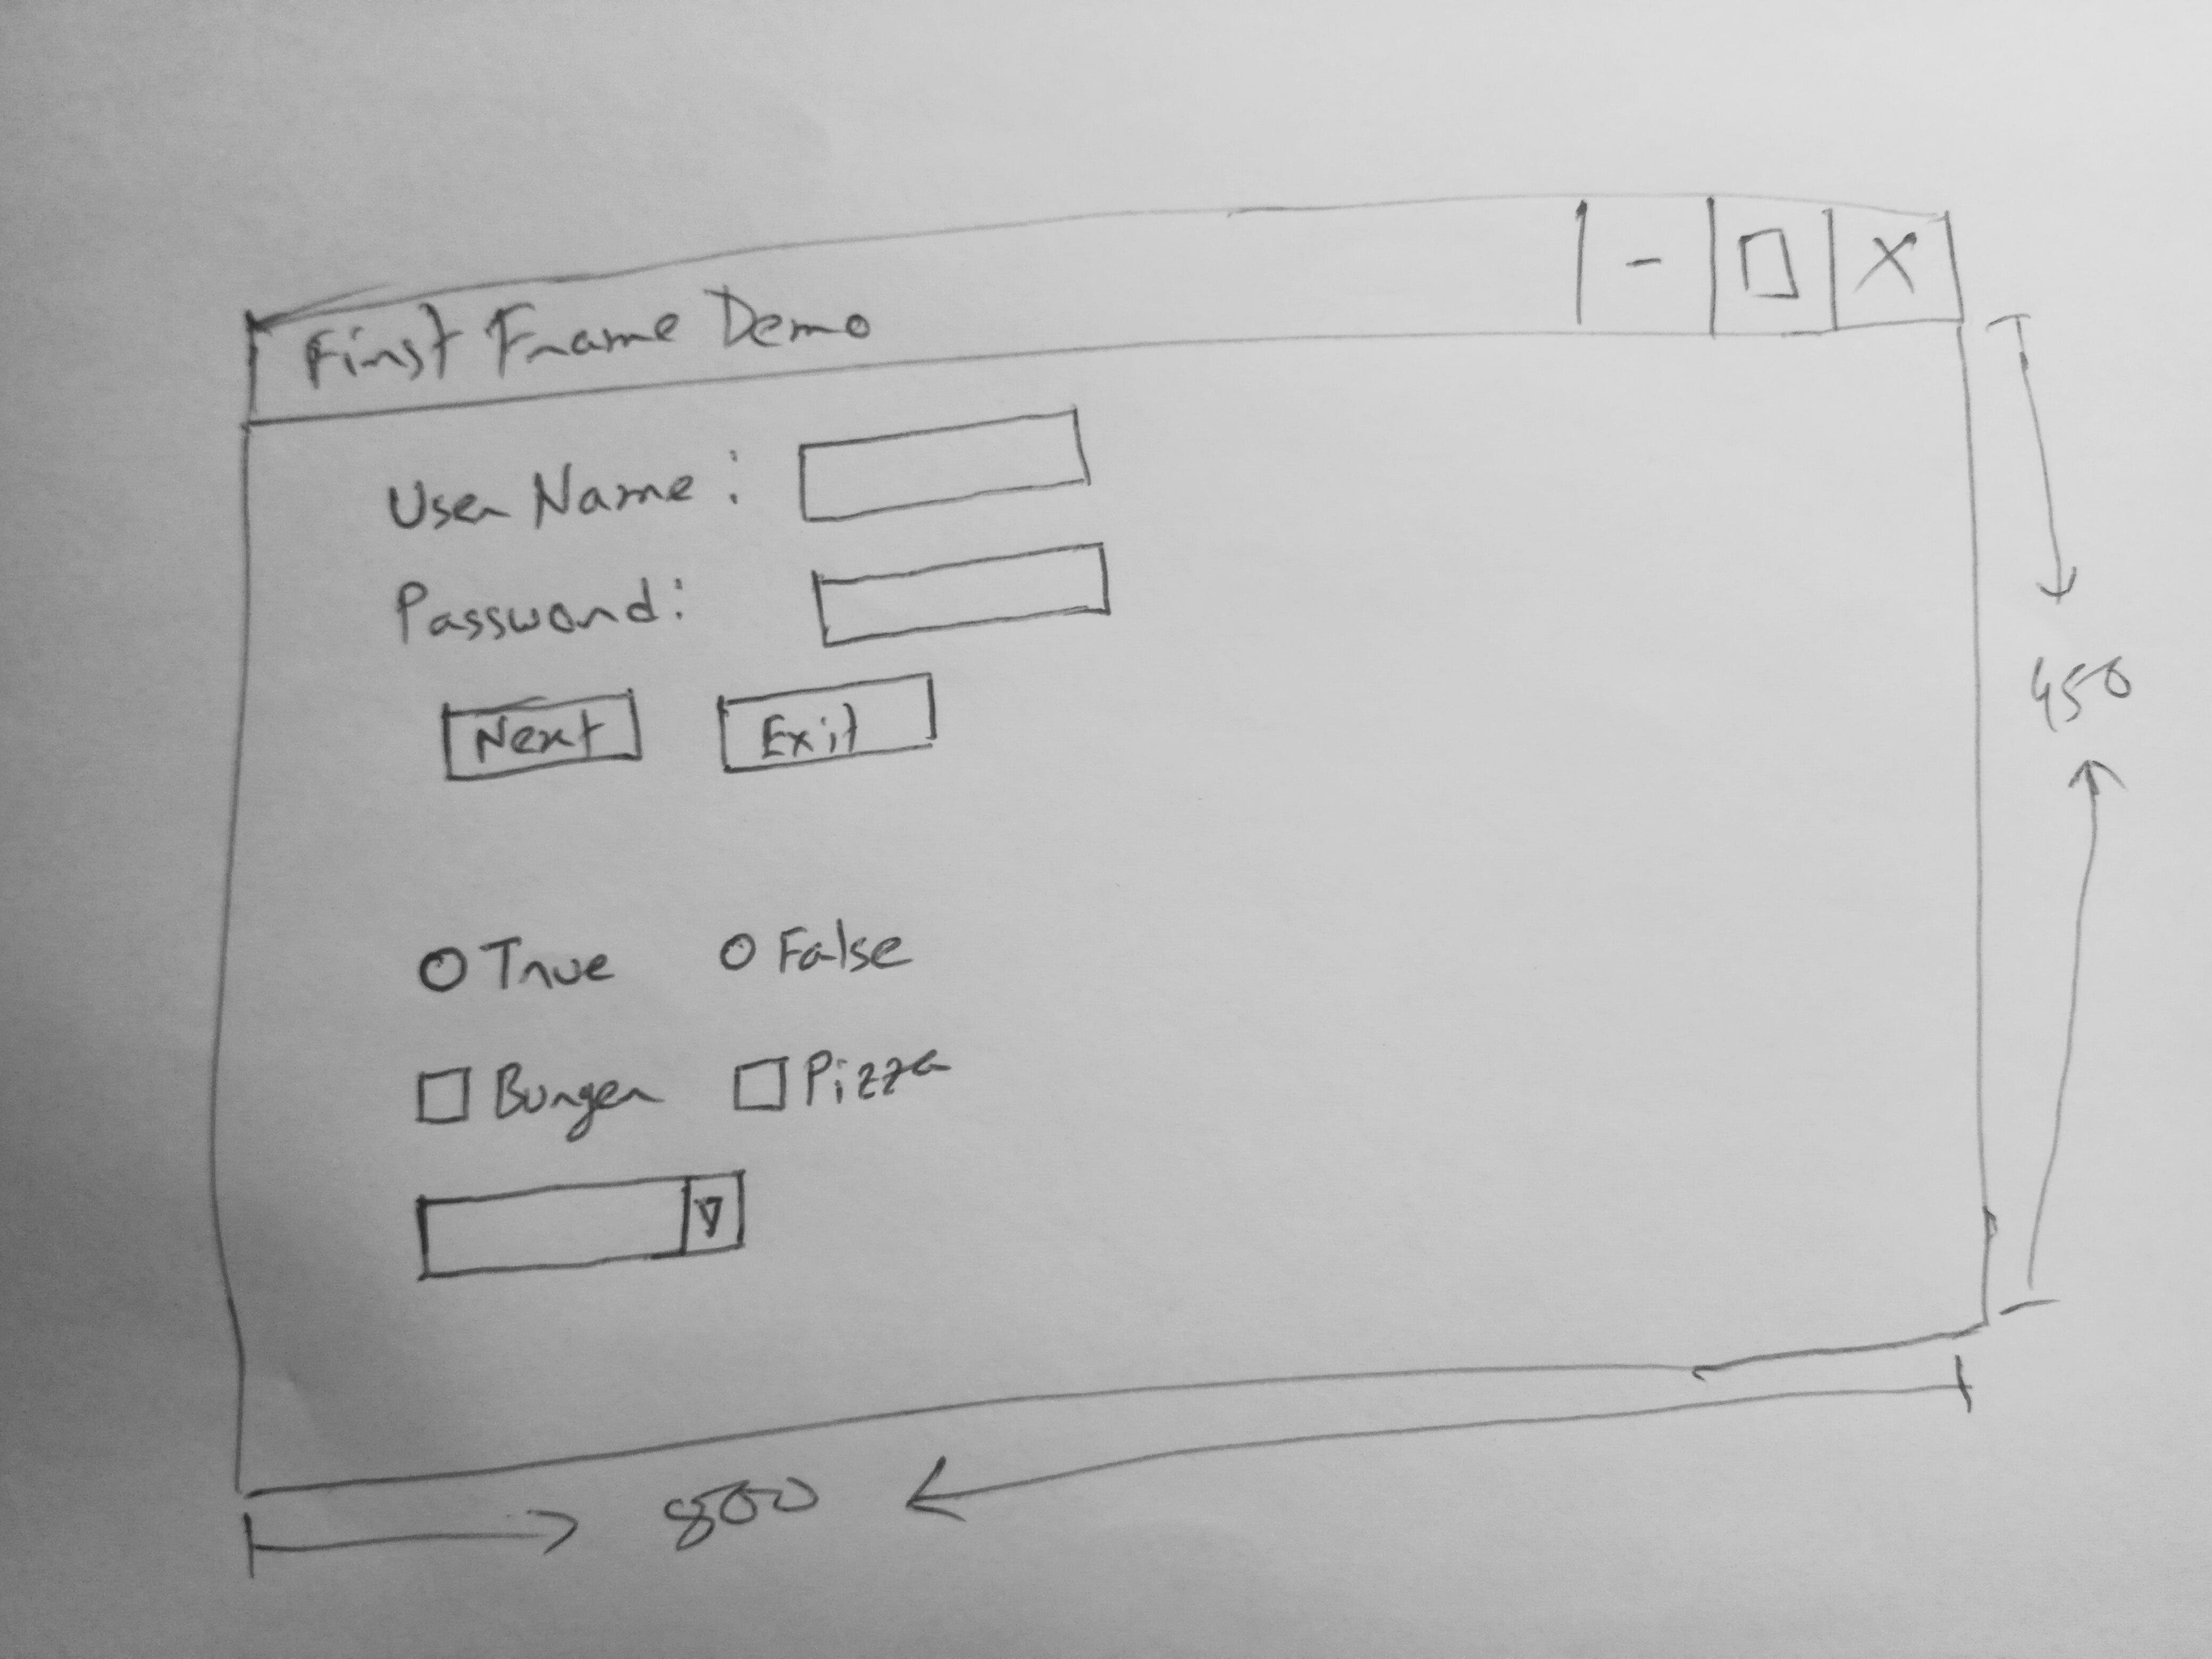 First Frame Demo
User Name :
Password :
Next Exit
True False
Burger Pizza
450
800